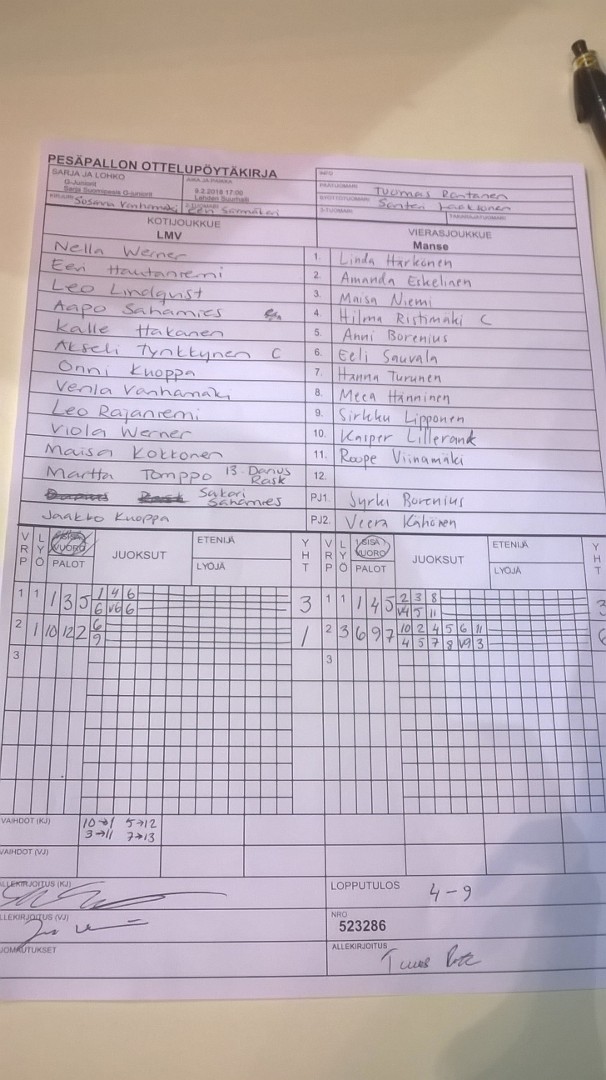 PESÄPALLON OTTELUPÖYTÄKIRJA
SARJA JA LOHKO
G-Juniorit
Sarja Suurinpesis G-juniorit
AIKA JA PAIKKA
9.2.2018 17:00
Lahden Suurhalli
PÄÄTUOMARI Tuomas Rantanen
SYÖTTÖTUOMARI Santeri Laaksonen
2-TUOMARI
TAKARAJATUOMARI
KIRJURI Susanna Vanhamäki
KOTIJOUKKUE
LMV
VIERASJOUKKUE
Manse
Nella Werner 1. Linda Harkonen
Eevi Hautaniemi 2. Amanda Eskelinen
Leo Lindqvist 3. Maisa Niemi
Aapo Sahamies 4. Hilma Ristimäki C
Kalle Hakanen 5. Anni Borenius
Akseli Tynkkynen C 6. Eeli Sauvala
Onni Knoppa 7. Hanna Turunen
Venla Vanhamäki 8. Meea Hänninen
Leo Rajaniemi 9. Sirkku Lipponen
Viola Werner 10. Kasper Lillerank
Maisa Kokkonen 11. Roope Viinamäki
Martta Tomppo 13. Darius Rask 12.
Sakari Sahamies PJ1. Syrki Borenius
Jaakko Knoppa PJ2. Veera Kahonen
VRP LYÖ SISÄVUORO PALOT JUOKSUT ETENIJÄ LYÖJÄ YHT VRP LYÖ SISÄVUORO PALOT JUOKSUT ETENIJÄ LYÖJÄ YHT
1 1 1 3 5 1 4 6 3 1 1 1 4 5 2 3 8 3
6 v6 6 v4 5 11
2 1 10 12 2 6 1 2 3 6 9 7 10 2 4 5 6 11 6
9 4 5 7 8 v9 3
3 3
VAIHDOT (KJ) 10→1 5→12
3→11 7→13
VAIHDOT (VJ)
ALLEKIRJOITUS (KJ)
LOPPUTULOS 4-9
ALLEKIRJOITUS (VJ)
NRO
523286
HUOMAUTUKSET
ALLEKIRJOITUS